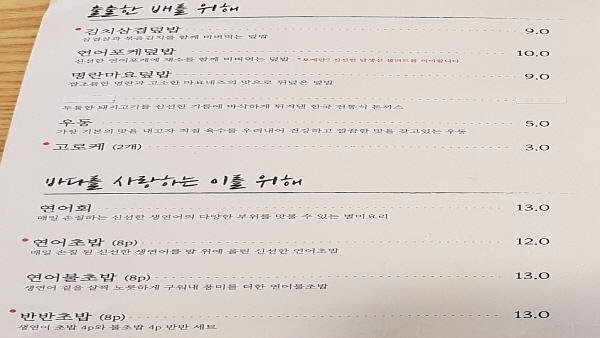 솔솔한 배를 위해
김치삼겹덮밥 9.0
삼겹살과 볶음김치를 함께 비벼먹는 덮밥
연어포케덮밥 10.0
신선한 연어포케에 채소를 함께 비벼먹는 덮밥 *포케란? 신선한 날생선 샐러드를 의미합니다.
명란마요덮밥 9.0
짭조름한 명란과 고소한 마요네즈의 맛으로 뒤덮은 덮밥
두툼한 돼지고기를 신선한 기름에 바삭하게 튀겨낸 한국 전통식 돈까스
우동 5.0
가장 기본의 맛을 내고자 직접 육수를 우려내어 건강하고 깔끔한 맛을 갖고있는 우동
고로케 (2개) 3.0
바다를 사랑하는 이를 위해
연어회 13.0
매일 손질하는 신선한 생연어의 다양한 부위를 맛볼 수 있는 별미요리
연어초밥 (8p) 12.0
매일 손질 된 신선한 생연어를 밥 위에 올린 신선한 연어초밥
연어불초밥 (8p) 13.0
생연어 겉을 살짝 노릇하게 구워내 풍미를 더한 연어불초밥
반반초밥 (8p) 13.0
생연어 초밥 4p와 불초밥 4p 반반 세트